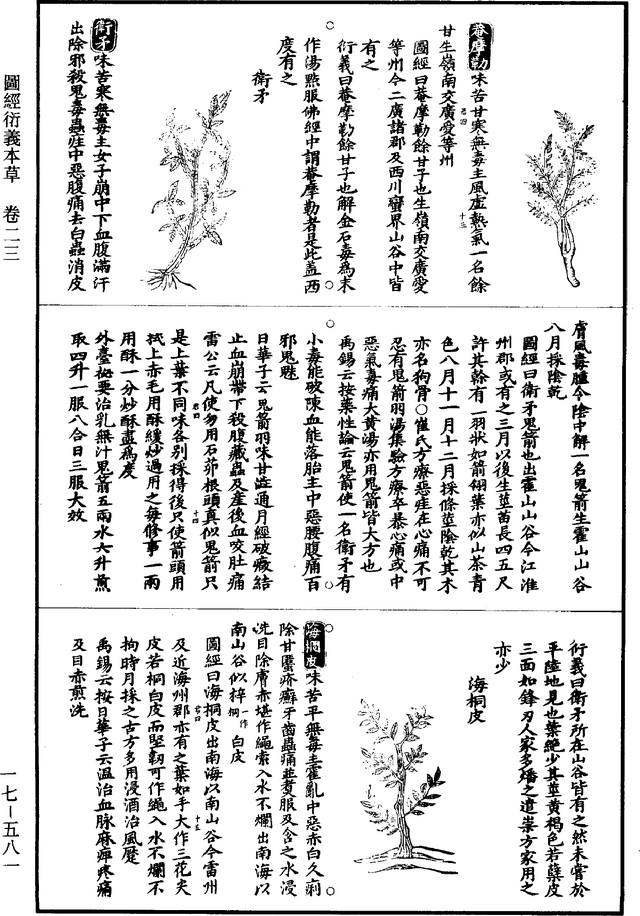 菴摩勒味苦甘寒無毒主風虛熱氣一名餘
甘生嶺南交廣愛等州
圖經曰菴摩勒餘甘子也生嶺南交廣愛
等州今二廣諸郡及西川蠻界山谷中皆
有之
衍義曰菴摩勒餘甘子也解金石毒爲末
作湯點服佛經中謂菴摩勒者是此蓋西
度有之
衛矛
衛矛味苦寒無毒主女子崩中下血腹滿汗
出除邪殺鬼毒蟲疰中惡腹痛去白蟲消皮
膚風毒腫令陰中解一名鬼箭生霍山山谷
八月採陰乾
圖經曰衛矛鬼箭也出霍山山谷今江淮
州郡或有之三月以後生莖苗長四五尺
許其幹有一羽狀如箭翎葉亦似山茶青
色八月十一月十二月採條莖陰乾其木
亦名狗骨○崔氏方療惡疰在心痛不可
忍有鬼箭羽湯集驗方療卒暴心痛或中
惡氣毒痛大黃湯亦用鬼箭皆大方也
禹錫云按藥性論云鬼箭使一名衛矛有
小毒能破陳血能落胎主中惡腰腹痛百
邪鬼魅
日華子云鬼箭羽味甘澁通月經破癥結
止血崩帶下殺腹藏蟲及產後血咬肚痛
雷公云凡使勿用石茆根頭真似鬼箭只
是上葉不同味各別採得後只使箭頭用
拭上赤毛用酥緩炒過用之每修事一兩
用酥一分炒酥盡爲度
外臺秘要治乳無汁鬼箭五兩水六升煎
取四升一服八合日三服大效
衍義曰衛矛所在山谷皆有之然未嘗於
平陸地見也葉絶少其莖黃褐色若蘗皮
三面如鋒刃人家多燔之遣祟方家用之
亦少
海桐皮
海桐皮味苦平無毒主霍亂中惡赤白久痢
除甘䘌疥癬牙齒蟲痛並煑服及含之水浸
洗目除膚赤堪作繩索入水不爛出南海以
南山谷似梓一作桐白皮
圖經曰海桐皮出南海以南山谷今雷州
及近海州郡亦有之葉如手大作三花尖
皮若桐白皮而堅韌可作繩入水不爛不
拘時月採之古方多用浸酒治風蹷
禹錫云按日華子云溫治血脉麻痺疼痛
及目赤煎洗
圖經衍義本草 卷二三
一七－五八一